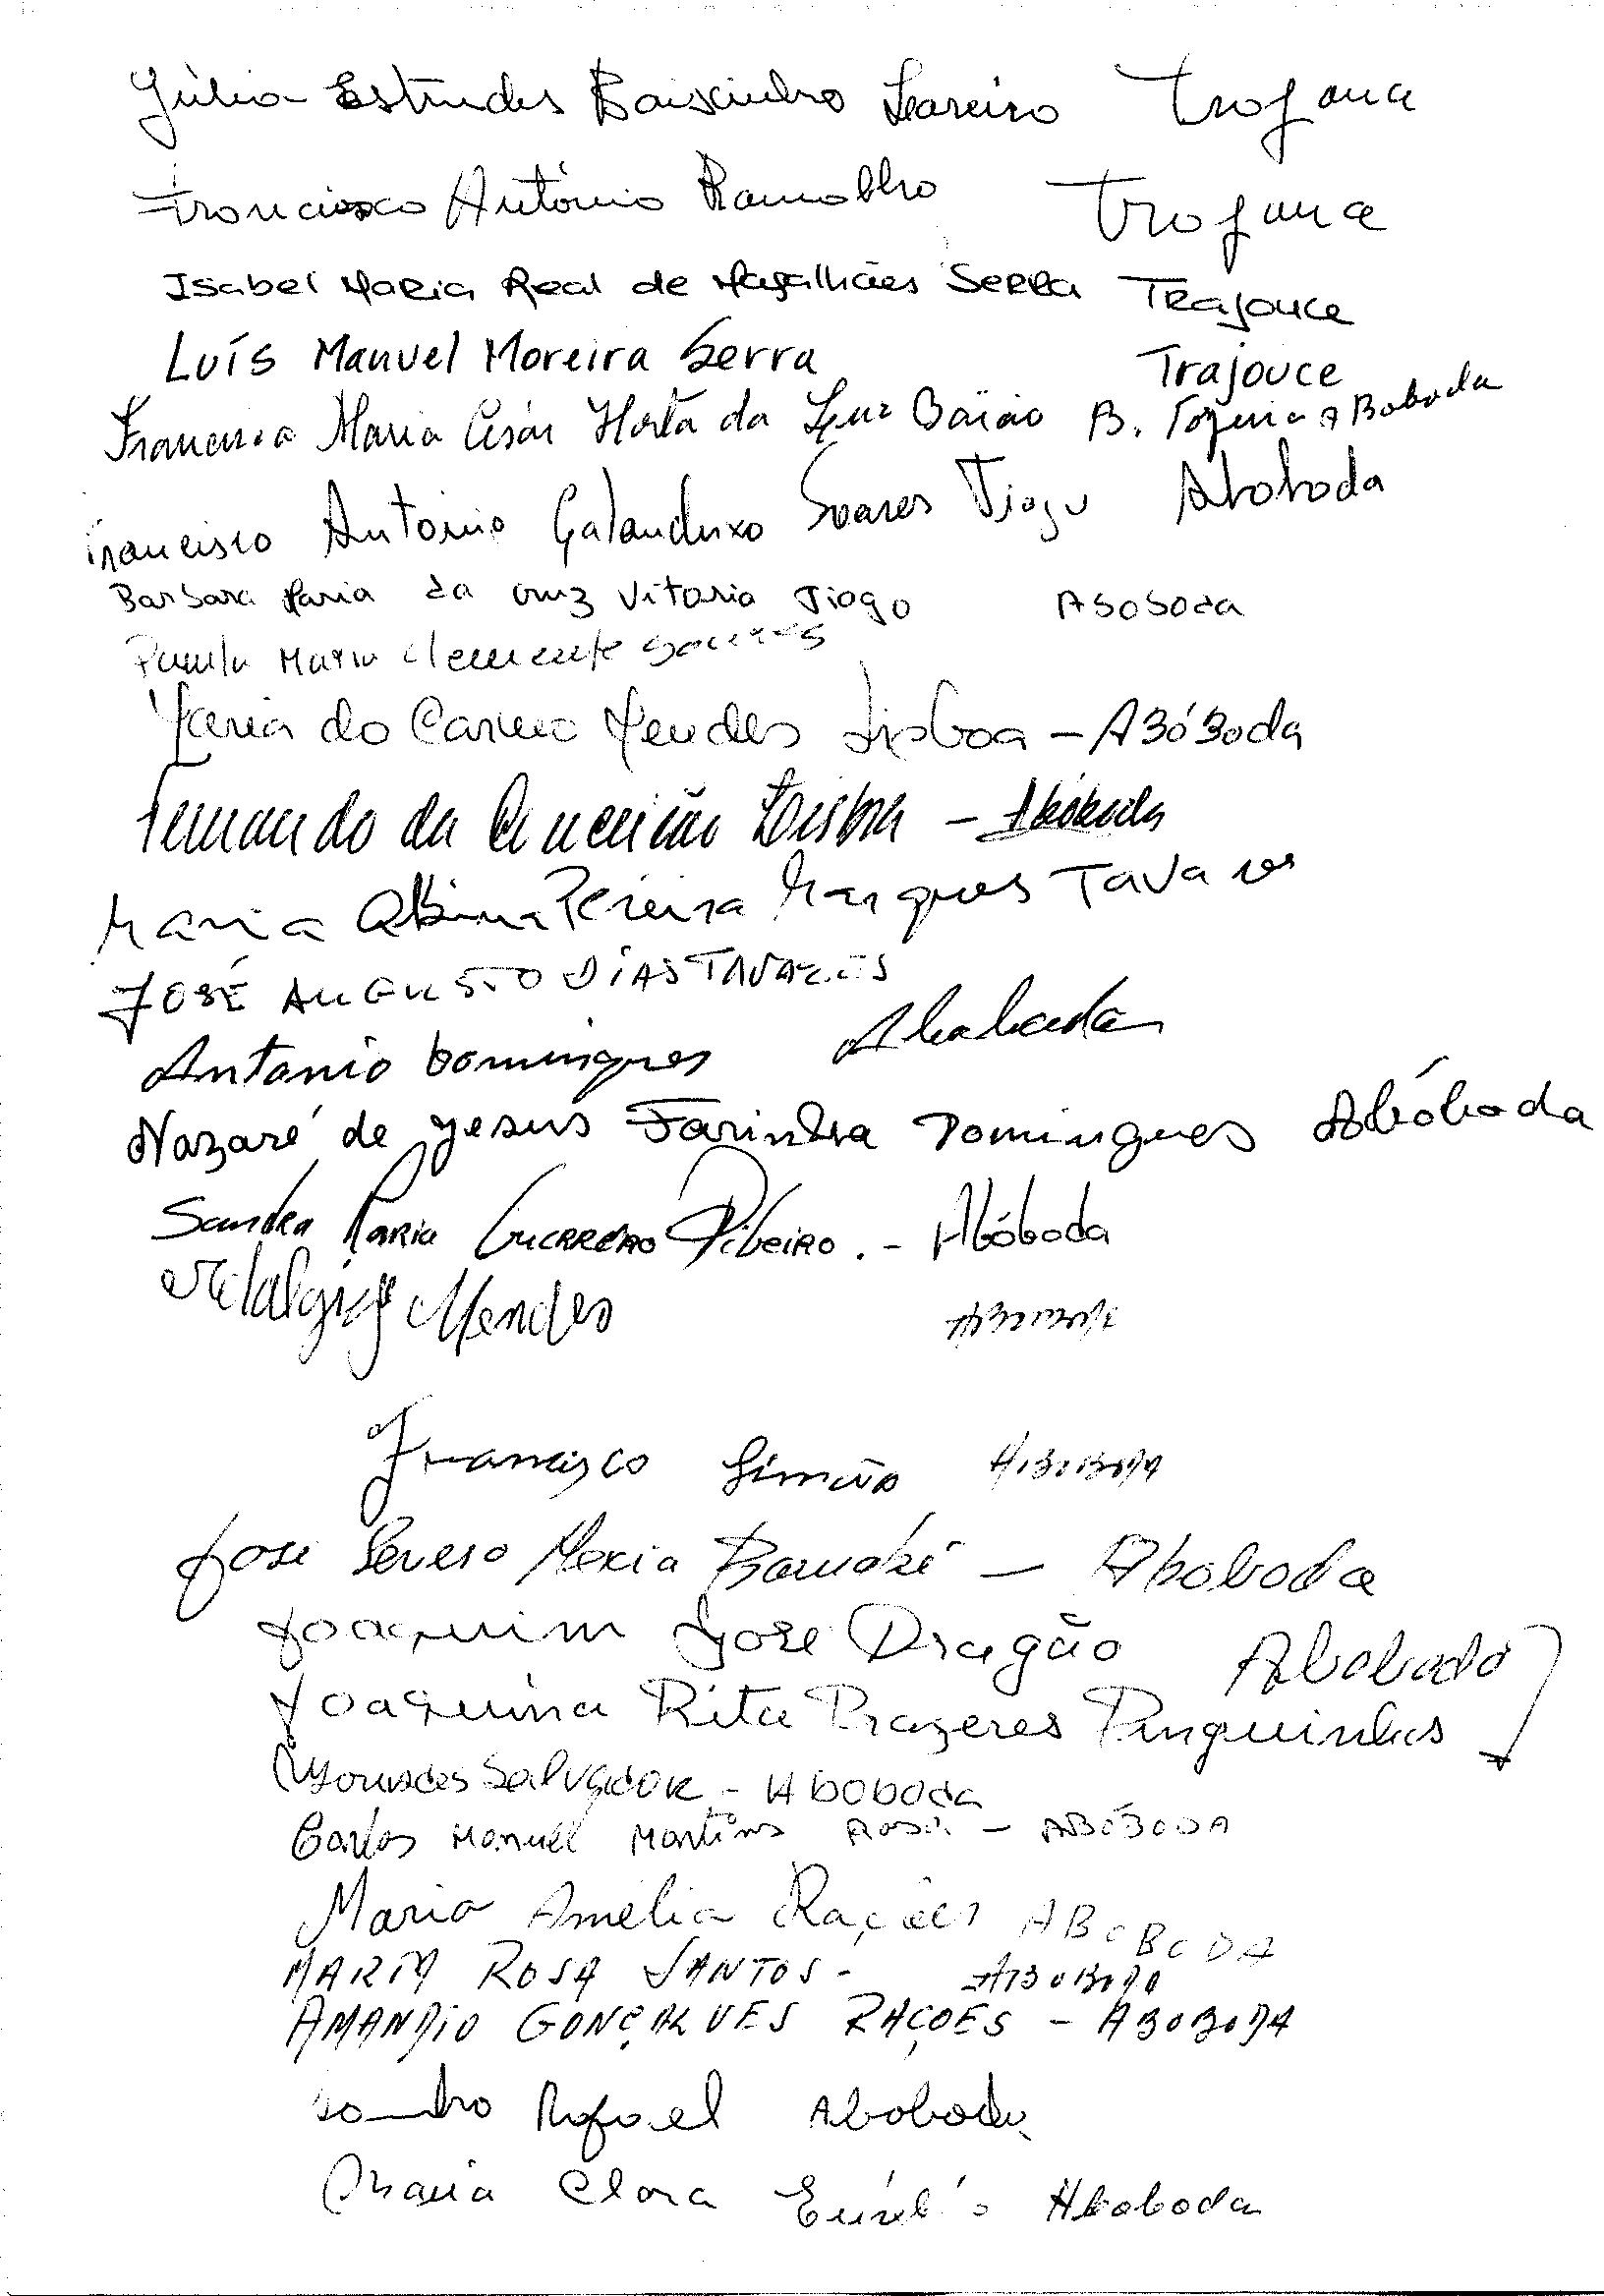 Júlia Estrudes Baixinho Trojouce
Francisco António Ramalho Trojouce
Isabel Maria Real de Magalhães Serra Trajouce
Luís Manuel Moreira Serra Trajouce
Francisca Maria César Horta da Luz Baião B. Aboboda
Francisco Antonio Galanduxo Soares Tiago Aboboda
Barbara Maria da Cruz Vitoria Tiogo Aboboda
Paula Maria Clemente Soares
Maria do Carmo Mendes Lisboa - Abóboda
Fernando da Conceição Lisboa - Abóboda
Maria Albina Pereira Marques Tavares
JOSÉ AUGUSTO DIAS TAVARES
Antonio Domingues Aboboda
Nazaré de Jesus Farinha Domingues Abóboda
Sandra Maria Guerreiro Ribeiro. - Abóboda
Mendes ABOBODA
Francisco Simão ABOBODA
José Severo Mexia - Aboboda
Joaquim José Dragão Aboboda
Joaquina Rita Prazeres Pinguinhas
Lourdes Salvador - Aboboda
Carlos Manuel Martins Rosa - ABÓBODA
Maria Amélia Rações ABOBODA
MARIA ROSA SANTOS - ABOBODA
AMANDIO GONÇALVES RAÇOES - ABOBODA
Sandro Rafael Aboboda
Maria Clara Aboboda